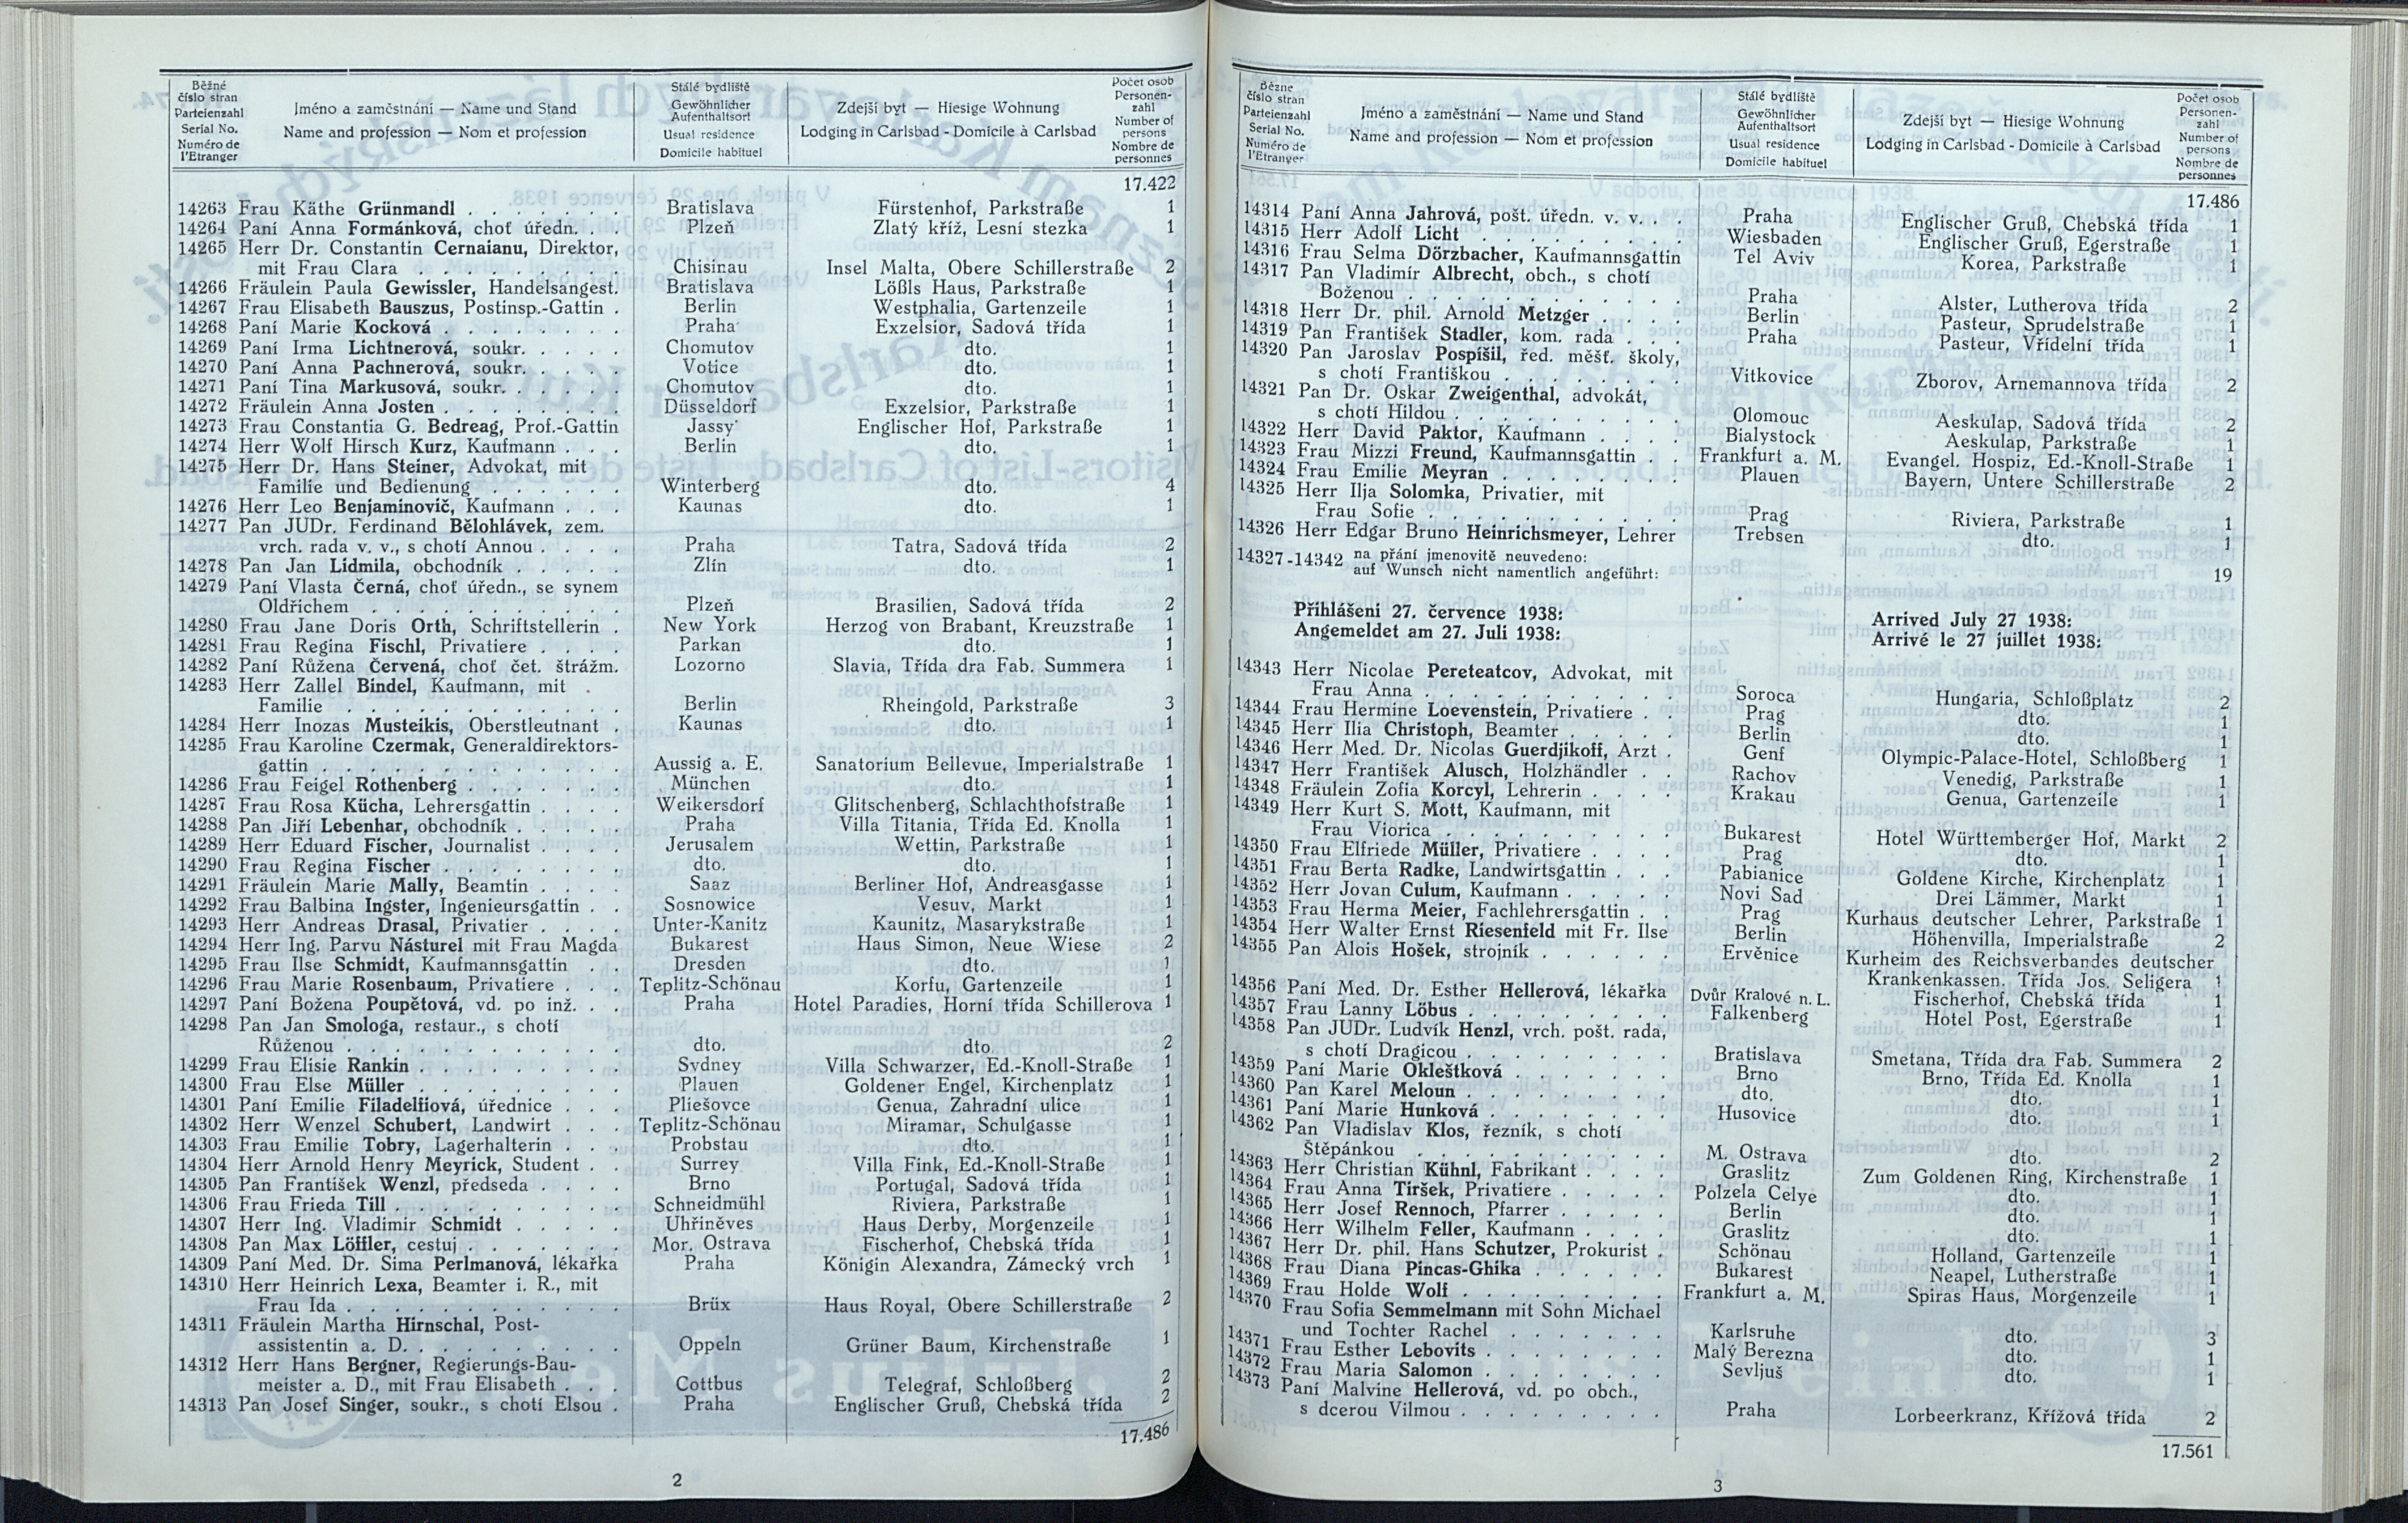 Běžné číslo stran Parteienzahl Serial No. Numéro de l'Etranger | Jméno a zaměstnání — Name und Stand Name and profession — Nom et profession | Stálé bydliště Gewöhnlicher Aufenthaltsort Usual residence Domicile habituel | Zdejší byt — Hiesige Wohnung Lodging in Carlsbad - Domicile à Carlsbad | Počet osob Personen-zahl Number of persons Nombre de personnes
17.422
14263 Frau Käthe Grünmandl . . . . . . Bratislava Fürstenhof, Parkstraße 1
14264 Paní Anna Formánková, choť úředn. . Plzeň Zlatý kříž, Lesní stezka 1
14265 Herr Dr. Constantin Cernaianu, Direktor,
mit Frau Clara . . . . . . . . Chisinau Insel Malta, Obere Schillerstraße 2
14266 Fräulein Paula Gewissler, Handelsangest. Bratislava Lößls Haus, Parkstraße 1
14267 Frau Elisabeth Bauszus, Postinsp.-Gattin . Berlin Westphalia, Gartenzeile 1
14268 Paní Marie Kocková . . . . . . . Praha Exzelsior, Sadová třída 1
14269 Paní Irma Lichtnerová, soukr. . . . . Chomutov dto. 1
14270 Paní Anna Pachnerová, soukr. . . . . Votice dto. 1
14271 Paní Tina Markusová, soukr. . . . . . Chomutov dto. 1
14272 Fräulein Anna Josten . . . . . . . Düsseldorf Exzelsior, Parkstraße 1
14273 Frau Constantia G. Bedreag, Prof.-Gattin Jassy Englischer Hof, Parkstraße 1
14274 Herr Wolf Hirsch Kurz, Kaufmann . . . Berlin dto. 1
14275 Herr Dr. Hans Steiner, Advokat, mit
Familie und Bedienung . . . . . . Winterberg dto. 4
14276 Herr Leo Benjaminovič, Kaufmann . . . Kaunas dto. 1
14277 Pan JUDr. Ferdinand Bělohlávek, zem.
vrch. rada v. v., s chotí Annou . . . Praha Tatra, Sadová třída 2
14278 Pan Jan Lidmila, obchodník . . . . . Zlín dto. 1
14279 Paní Vlasta Černá, choť úředn., se synem
Oldřichem . . . . . . . . . . Plzeň Brasilien, Sadová třída 2
14280 Frau Jane Doris Orth, Schriftstellerin . New York Herzog von Brabant, Kreuzstraße 1
14281 Frau Regina Fischl, Privatiere . . . . Parkan dto. 1
14282 Paní Růžena Červená, choť čet. štrážm. Lozorno Slavia, Třída dra Fab. Summera 1
14283 Herr Zallel Bindel, Kaufmann, mit
Familie . . . . . . . . . . . Berlin Rheingold, Parkstraße 3
14284 Herr Inozas Musteikis, Oberstleutnant . Kaunas dto. 1
14285 Frau Karoline Czermak, Generaldirektors-
gattin . . . . . . . . . . . . Aussig a. E. Sanatorium Bellevue, Imperialstraße 1
14286 Frau Feigel Rothenberg . . . . . . München dto. 1
14287 Frau Rosa Kücha, Lehrersgattin . . . . Weikersdorf Glitschenberg, Schlachthofstraße 1
14288 Pan Jiří Lebenhar, obchodník . . . . . Praha Villa Titania, Třída Ed. Knolla 1
14289 Herr Eduard Fischer, Journalist . . . . Jerusalem Wettin, Parkstraße 1
14290 Frau Regina Fischer . . . . . . . dto. dto. 1
14291 Fräulein Marie Mally, Beamtin . . . . Saaz Berliner Hof, Andreasgasse 1
14292 Frau Balbina Ingster, Ingenieursgattin . . Sosnowice Vesuv, Markt 1
14293 Herr Andreas Drasal, Privatier . . . . Unter-Kanitz Kaunitz, Masarykstraße 1
14294 Herr Ing. Parvu Násturel mit Frau Magda Bukarest Haus Simon, Neue Wiese 2
14295 Frau Ilse Schmidt, Kaufmannsgattin . . Dresden dto. 1
14296 Frau Marie Rosenbaum, Privatiere . . . Teplitz-Schönau Korfu, Gartenzeile 1
14297 Paní Božena Poupětová, vd. po inž. . . Praha Hotel Paradies, Horní třída Schillerova 1
14298 Pan Jan Smologa, restaur., s chotí
Růženou . . . . . . . . . . . dto. dto. 2
14299 Frau Elisie Rankin . . . . . . . . Sydney Villa Schwarzer, Ed.-Knoll-Straße 1
14300 Frau Else Müller . . . . . . . . Plauen Goldener Engel, Kirchenplatz 1
14301 Paní Emilie Filadelfiová, úřednice . . . Pliešovce Genua, Zahradní ulice 1
14302 Herr Wenzel Schubert, Landwirt . . . Teplitz-Schönau Miramar, Schulgasse 1
14303 Frau Emilie Tobry, Lagerhalterin . . . Probstau dto. 1
14304 Herr Arnold Henry Meyrick, Student . . Surrey Villa Fink, Ed.-Knoll-Straße 1
14305 Pan František Wenzl, předseda . . . . Brno Portugal, Sadová třída 1
14306 Frau Frieda Till . . . . . . . . . Schneidmühl Riviera, Parkstraße 1
14307 Herr Ing. Vladimir Schmidt . . . . . Uhříněves Haus Derby, Morgenzeile 1
14308 Pan Max Löffler, cestuj . . . . . . . Mor. Ostrava Fischerhof, Chebská třída 1
14309 Paní Med. Dr. Sima Perlmanová, lékařka Praha Königin Alexandra, Zámecký vrch 1
14310 Herr Heinrich Lexa, Beamter i. R., mit
Frau Ida . . . . . . . . . . . Brüx Haus Royal, Obere Schillerstraße 2
14311 Fräulein Martha Hirnschal, Post-
assistentin a. D. . . . . . . . . . Oppeln Grüner Baum, Kirchenstraße 1
14312 Herr Hans Bergner, Regierungs-Bau-
meister a. D., mit Frau Elisabeth . . . Cottbus Telegraf, Schloßberg 2
14313 Pan Josef Singer, soukr., s chotí Elsou . Praha Englischer Gruß, Chebská třída 2
17.486
2
Běžné číslo stran Parteienzahl Serial No. Numéro de l'Etranger | Jméno a zaměstnání — Name und Stand Name and profession — Nom et profession | Stálé bydliště Gewöhnlicher Aufenthaltsort Usual residence Domicile habituel | Zdejší byt — Hiesige Wohnung Lodging in Carlsbad - Domicile à Carlsbad | Počet osob Personen-zahl Number of persons Nombre de personnes
17.486
14314 Paní Anna Jahrová, pošt. úředn. v. v. . . Praha Englischer Gruß, Chebská třída 1
14315 Herr Adolf Licht . . . . . . . . Wiesbaden Englischer Gruß, Egerstraße 1
14316 Frau Selma Dörzbacher, Kaufmannsgattin Tel Aviv Korea, Parkstraße 1
14317 Pan Vladimír Albrecht, obch., s chotí
Boženou . . . . . . . . . . . Praha Alster, Lutherova třída 2
14318 Herr Dr. phil. Arnold Metzger . . . . Berlin Pasteur, Sprudelstraße 1
14319 Pan František Stadler, kom. rada . . . Praha Pasteur, Vřídelní třída 1
14320 Pan Jaroslav Pospíšil, řed. měšť. školy,
s chotí Františkou . . . . . . . . Vitkovice Zborov, Arnemannova třída 2
14321 Pan Dr. Oskar Zweigenthal, advokát,
s chotí Hildou . . . . . . . . . Olomouc Aeskulap, Sadová třída 2
14322 Herr David Paktor, Kaufmann . . . . Bialystock Aeskulap, Parkstraße 1
14323 Frau Mizzi Freund, Kaufmannsgattin . . Frankfurt a. M. Evangel. Hospiz, Ed.-Knoll-Straße 1
14324 Frau Emilie Meyran . . . . . . . . Plauen Bayern, Untere Schillerstraße 2
14325 Herr Ilja Solomka, Privatier, mit
Frau Sofie . . . . . . . . . . Prag Riviera, Parkstraße 1
14326 Herr Edgar Bruno Heinrichsmeyer, Lehrer Trebsen dto. 1
14327-14342 na přání jmenovitě neuvedeno:
auf Wunsch nicht namentlich angeführt: 19
Přihlášeni 27. července 1938: Arrived July 27 1938:
Angemeldet am 27. Juli 1938: Arrivé le 27 juillet 1938:
14343 Herr Nicolae Pereteatcov, Advokat, mit
Frau Anna . . . . . . . . . . Soroca Hungaria, Schloßplatz 2
14344 Frau Hermine Loevenstein, Privatiere . . Prag dto. 1
14345 Herr Ilia Christoph, Beamter . . . . . Berlin dto. 1
14346 Herr Med. Dr. Nicolas Guerdjikoff, Arzt . Genf Olympic-Palace-Hotel, Schloßberg 1
14347 Herr František Alusch, Holzhändler . . Rachov Venedig, Parkstraße 1
14348 Fräulein Zofia Korcyl, Lehrerin . . . . Krakau Genua, Gartenzeile 1
14349 Herr Kurt S. Mott, Kaufmann, mit
Frau Viorica . . . . . . . . . Bukarest Hotel Württemberger Hof, Markt 2
14350 Frau Elfriede Müller, Privatiere . . . . Prag dto. 1
14351 Frau Berta Radke, Landwirtsgattin . . . Pabianice Goldene Kirche, Kirchenplatz 1
14352 Herr Jovan Culum, Kaufmann . . . . Novi Sad Drei Lämmer, Markt 1
14353 Frau Herma Meier, Fachlehrersgattin . . Prag Kurhaus deutscher Lehrer, Parkstraße 1
14354 Herr Walter Ernst Riesenfeld mit Fr. Ilse Berlin Höhenvilla, Imperialstraße 2
14355 Pan Alois Hošek, strojník . . . . . . Ervěnice Kurheim des Reichsverbandes deutscher
Krankenkassen, Třída Jos. Seligera 1
14356 Paní Med. Dr. Esther Hellerová, lékařka Dvůr Kralové n. L. Fischerhof, Chebská třída 1
14357 Frau Lanny Löbus . . . . . . . . Falkenberg Hotel Post, Egerstraße 1
14358 Pan JUDr. Ludvík Henzl, vrch. pošt. rada,
s chotí Dragicou . . . . . . . . Bratislava Smetana, Třída dra Fab. Summera 2
14359 Paní Marie Okleštková . . . . . . . Brno Brno, Třída Ed. Knolla 1
14360 Pan Karel Meloun . . . . . . . . dto. dto. 1
14361 Paní Marie Hunková . . . . . . . Husovice dto. 1
14362 Pan Vladislav Klos, řezník, s chotí
Štěpánkou . . . . . . . . . . M. Ostrava dto. 2
14363 Herr Christian Kühnl, Fabrikant . . . . Graslitz Zum Goldenen Ring, Kirchenstraße 1
14364 Frau Anna Tiršek, Privatiere . . . . . Polzela Celye dto. 1
14365 Herr Josef Rennoch, Pfarrer . . . . . Berlin dto. 1
14366 Herr Wilhelm Feller, Kaufmann . . . . Graslitz dto. 1
14367 Herr Dr. phil. Hans Schutzer, Prokurist . Schönau Holland, Gartenzeile 1
14368 Frau Diana Pincas-Ghika . . . . . . Bukarest Neapel, Lutherstraße 1
14369 Frau Holde Wolf . . . . . . . . . Frankfurt a. M. Spiras Haus, Morgenzeile 1
14370 Frau Sofia Semmelmann mit Sohn Michael
und Tochter Rachel . . . . . . . Karlsruhe dto. 3
14371 Frau Esther Lebovits . . . . . . . . Malý Berezna dto. 1
14372 Frau Maria Salomon . . . . . . . . Sevljuš dto. 1
14373 Paní Malvine Hellerová, vd. po obch.,
s dcerou Vilmou . . . . . . . . . Praha Lorbeerkranz, Křížová třída 2
17.561
3